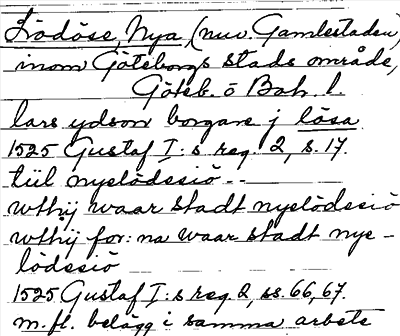 Lödöse, Nya, (nuv. Gamlestaden)
inom Göteborgs stads område,
Göteb. o Boh. l.
lars ydson borgare j lösa
1525 Gustaf I:s reg. 2, s. 17.
tiil nyelödesiö --
wthij waar stadt nyelödessiö
wthij for:na waar stadt nye-
lödessiö
1525 Gustaf I:s reg 2, ss. 66, 67.
m. fl. belägg i samma arbete